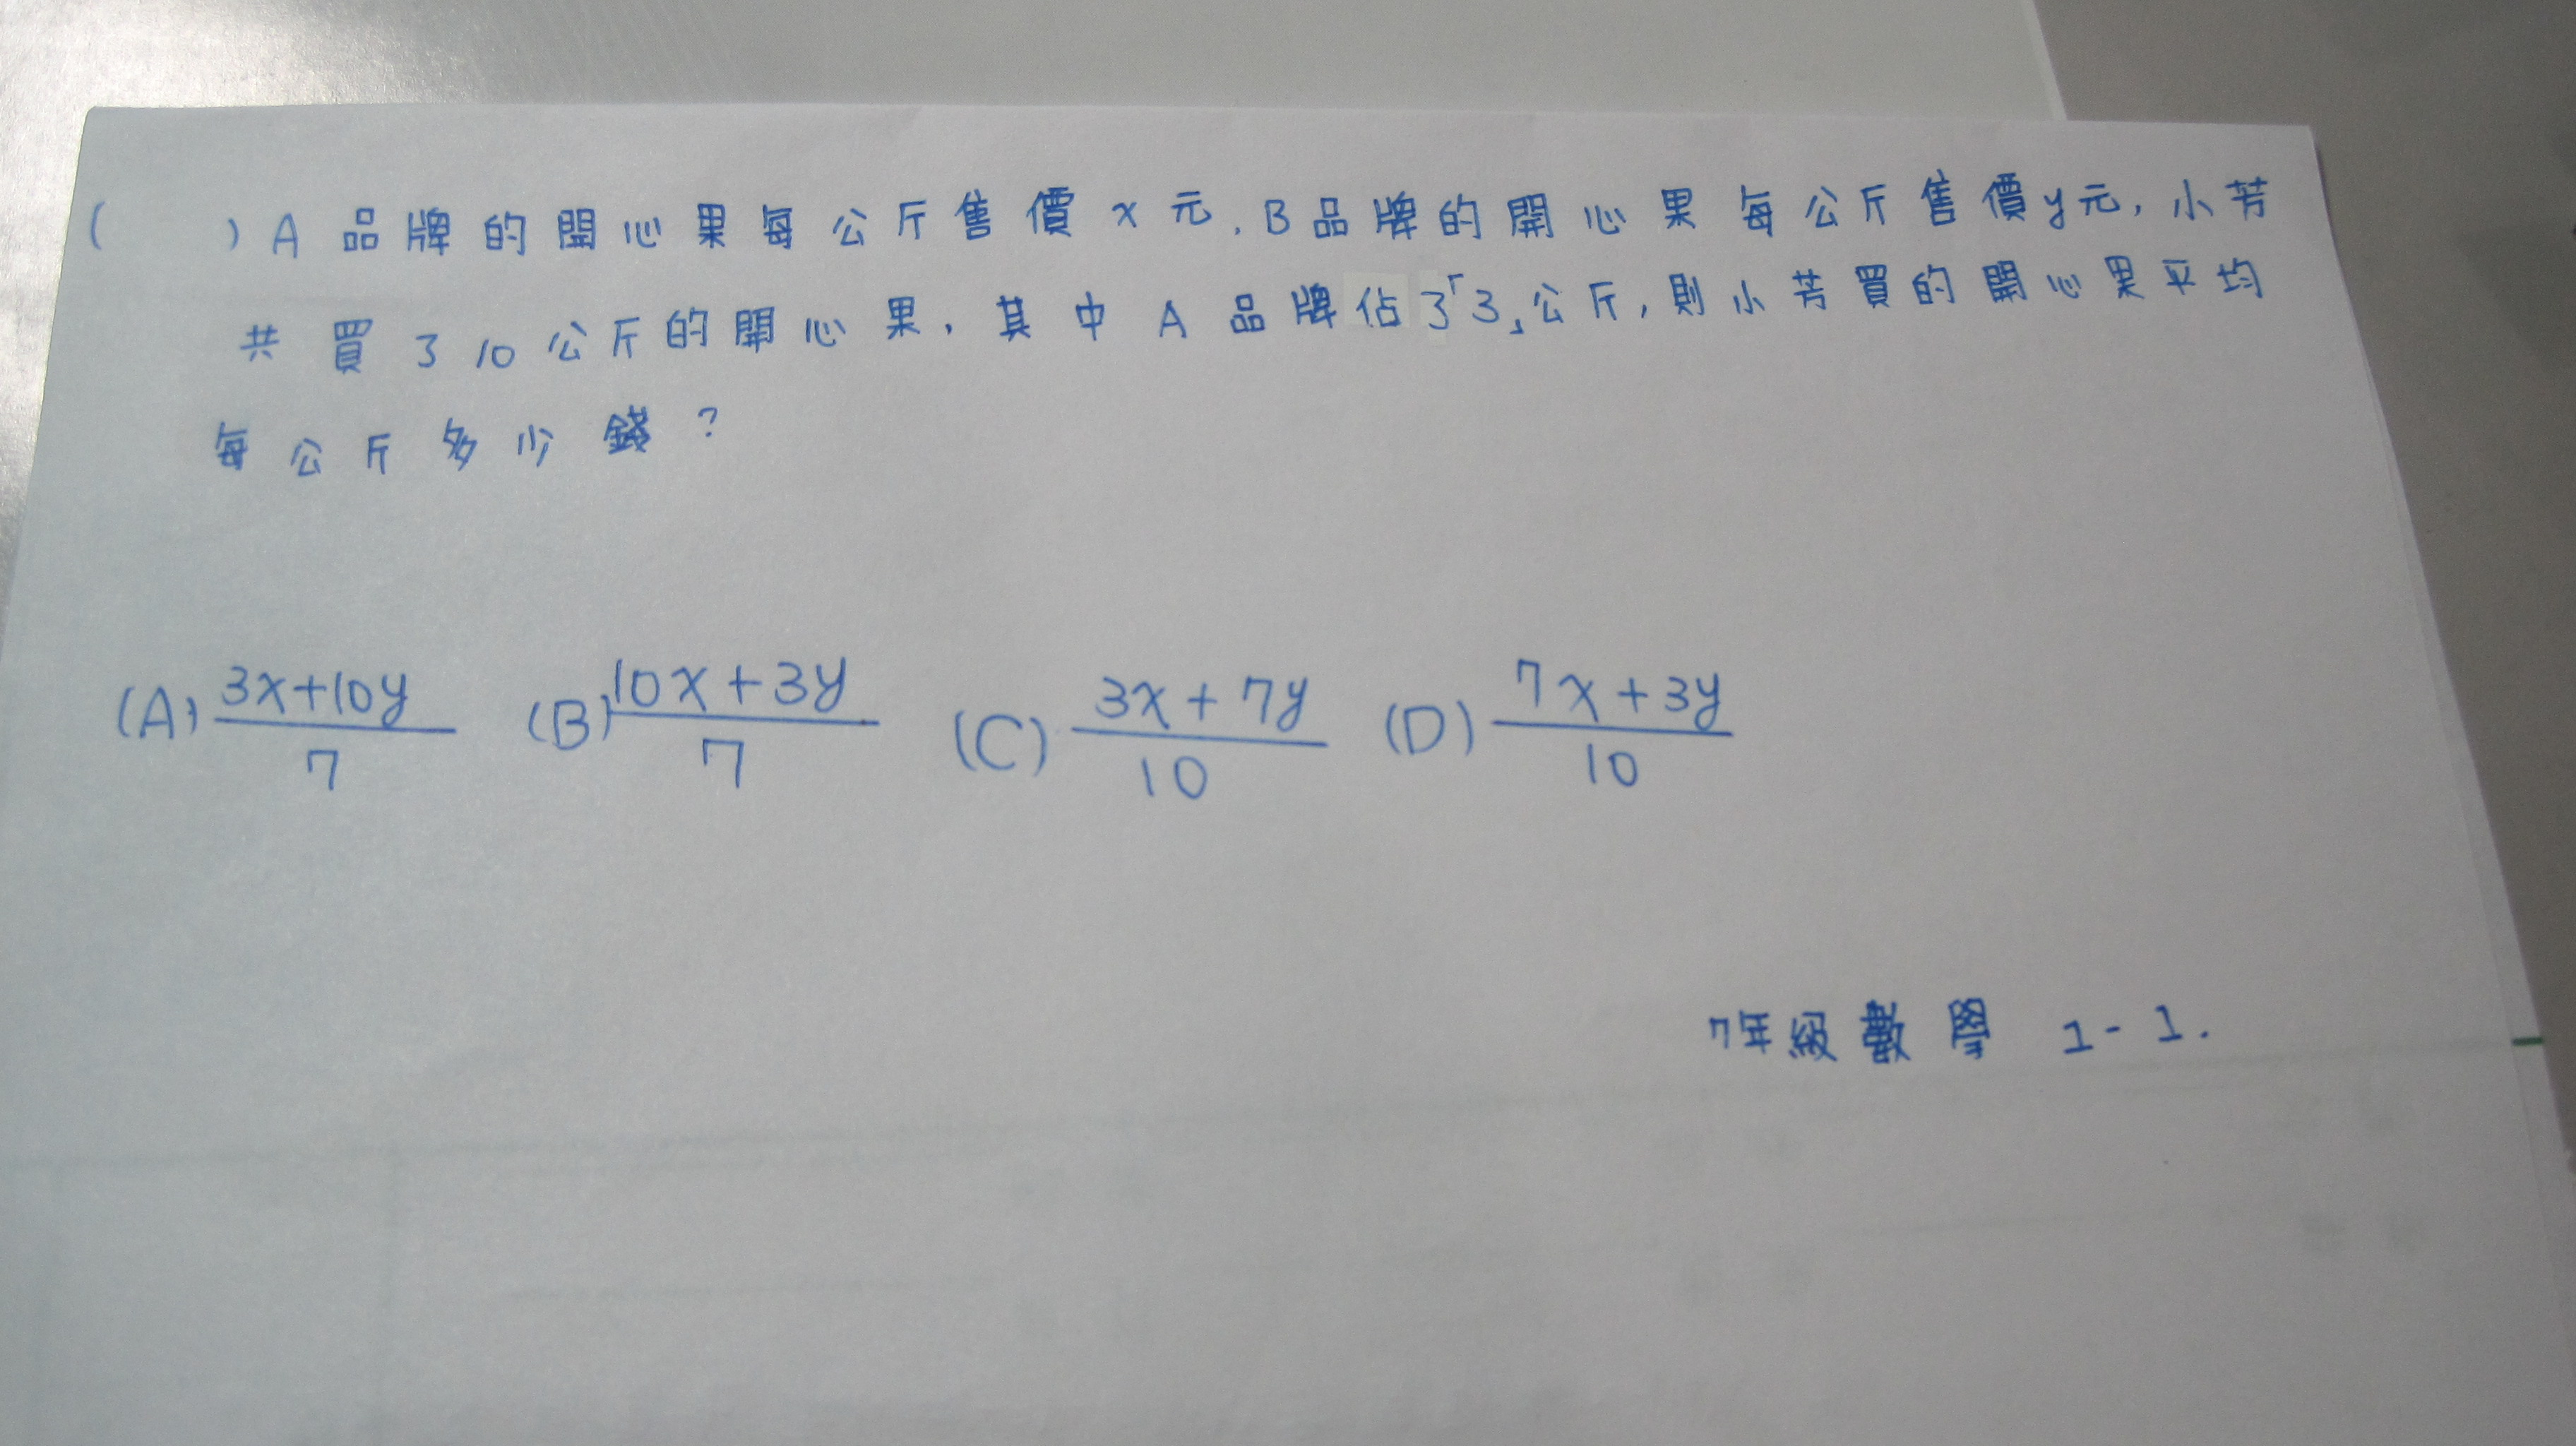 (　　) A 品牌的開心果每公斤售價 x 元, B 品牌的開心果每公斤售價 y 元, 小芳
共買了 10 公斤的開心果, 其中 A 品牌佔了「3」公斤, 則小芳買的開心果平均
每公斤多少錢?
(A) (3x+10y)/7 (B) (10x+3y)/7 (C) (3x+7y)/10 (D) (7x+3y)/10
7年級數學 1-1.